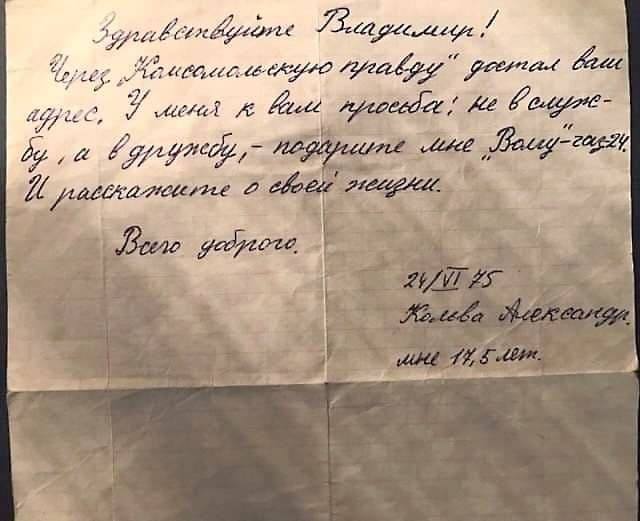 Здравствуйте Владимир!
Через „Комсомольскую правду" достал ваш
адрес. У меня к вам просьба: не в служ-
бу, а в дружбу, – подарите мне „Волгу"-газ-24.
И расскажите о своей жизни.
Всего доброго.
24/VI 75
Кольва Александр.
мне 17,5 лет.